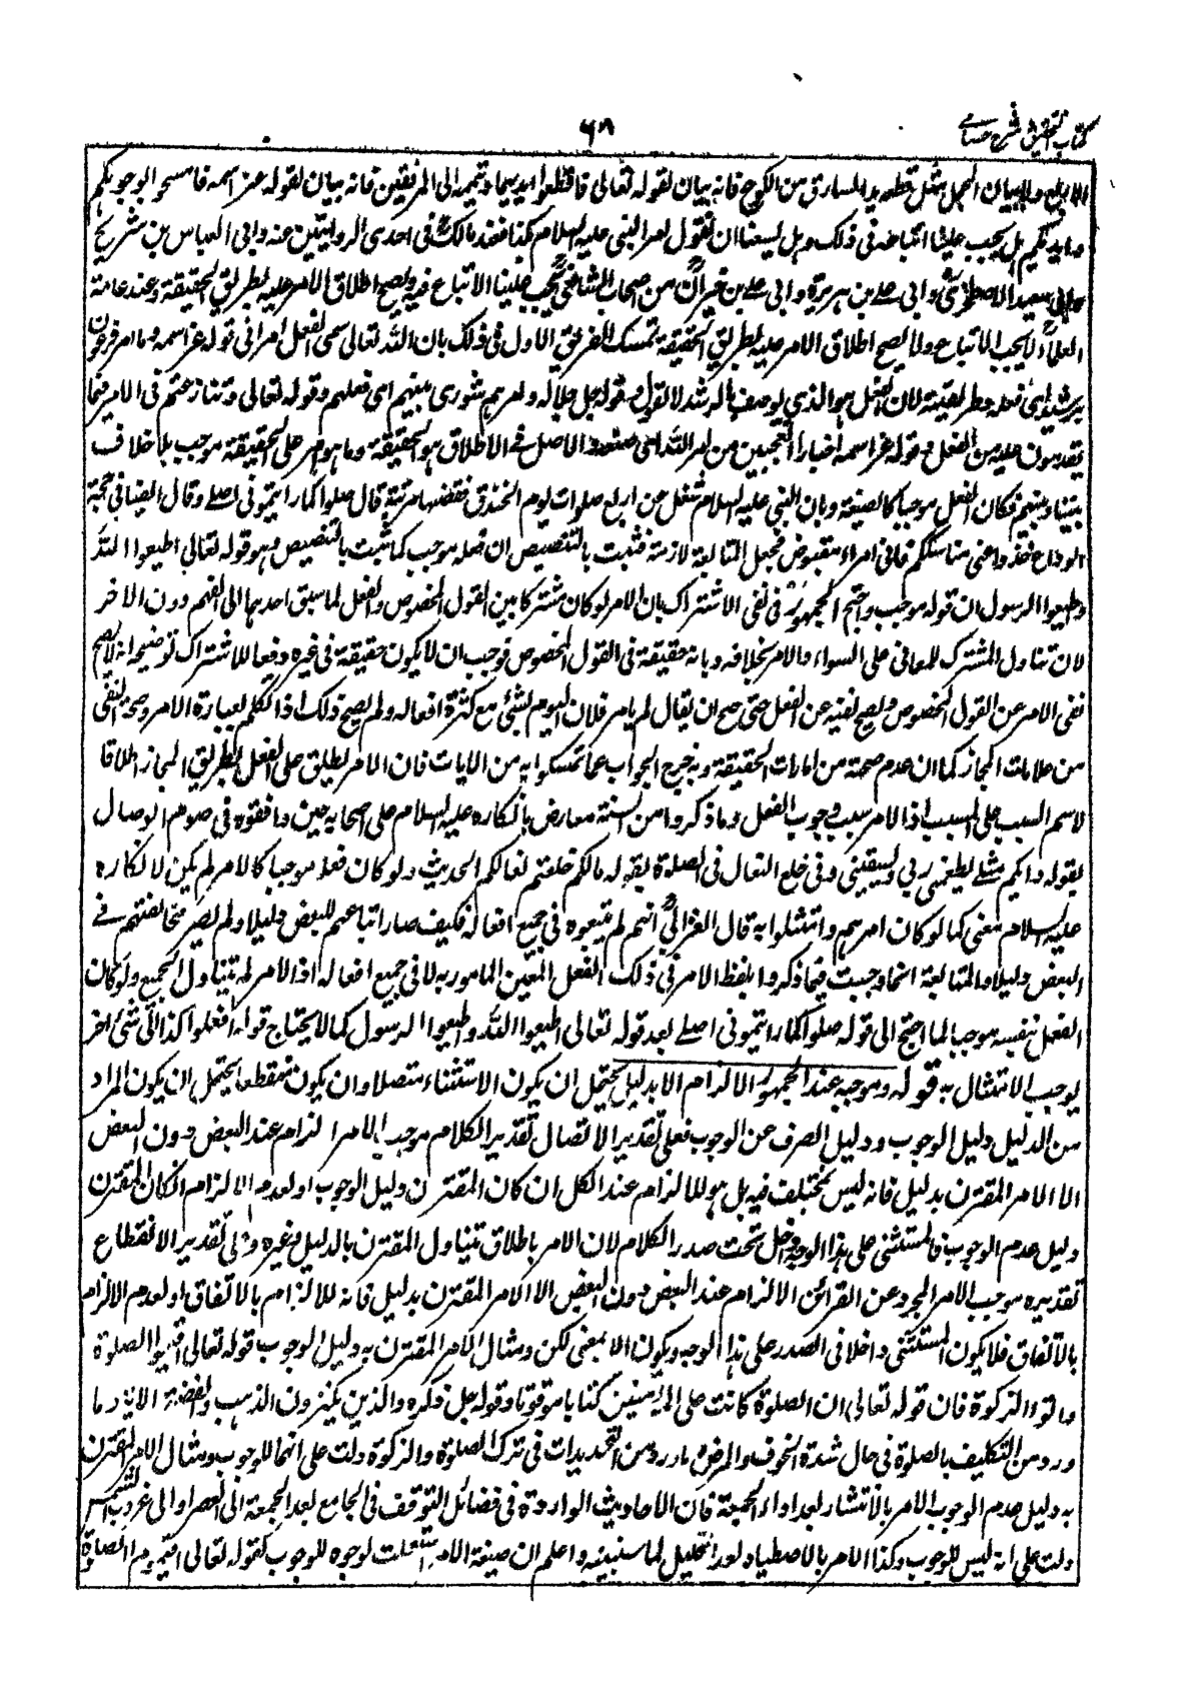 كتاب التحقيق شرح حسامي
٦٨
الاربع والبيان المجمل مثل قطعه يد السارق من الكوع فانه بيان لقوله تعالى فاقطعوا ايديهما وتيممه الى المرفقين فانه بيان لقوله عز اسمه فامسحوا بوجوهكم
وايديكم هل يجب علينا اتباعه فى ذلك وهل يسعنا ان نقول امر النبى عليه السلام كذا فعند مالك فى احدى الروايتين عنه وابى العباس بن شريح
وابى سعيد الاصطخرى وابى على بن ابى هريرة وابى على بن خيران من اصحاب الشافعى يجب علينا الاتباع فيه ويصح اطلاق الامر عليه بطريق الحقيقة وعند عامة
العلماء لا يجب الاتباع ولا يصح اطلاق الامر عليه بطريق الحقيقة تمسك الفريق الاول فى ذلك بان الله تعالى سمى الفعل امرا فى قوله عز اسمه وما امر فرعون
برشيد اى فعله وطريقته لان الفعل هو الذى يوصف بالرشد لا القول وقوله جل جلاله وامرهم شورى بينهم اى فعلهم وقوله تعالى وتنازعتم فى الامر فيما
يقدمون عليه من الفعل وقوله عز اسمه اخبارا اتعجبين من امر الله اى صنعه والاصل فى الاطلاق هو الحقيقة وما هو امر على الحقيقة موجب بلا خلاف
بيننا وبينهم فكان الفعل موجبا كالصيغة وبان النبى عليه السلام شغل عن اربع صلوات يوم الخندق فقضاها مرتبة قال صلوا كما رايتمونى اصلى وقال ايضا فى حجة
الوداع خذوا عنى مناسككم فانى امرء مقبوض فجعل المتابعة لازمة فثبت بالتنصيص ان فعله موجب كما ثبت بالتنصيص وهو قوله تعالى اطيعوا الله
واطيعوا الرسول ان قوله موجب واحتج الجمهور فى نفى الاشتراك بان الامر لو كان مشتركا بين القول المخصوص والفعل لما سبق احدهما الى الفهم دون الاخر
لان تناول المشترك للمعانى على السواء والامر بخلافه وبانه حقيقة فى القول المخصوص فوجب ان لا يكون حقيقة فى غيره دفعا للاشتراك توضيحه انه لا يصح
نفى الامر عن القول المخصوص ويصح نفيه عن الفعل حتى صح ان يقال لم يامر فلان اليوم بشئ مع كثرة افعاله ولم يصح ذلك اذا تكلم بعبارة الامر وصحة النفى
من علامات المجاز كما ان عدم صحته من امارات الحقيقة وبه خرج الجواب عما تمسكوا به من الايات فان الامر يطلق على الفعل بطريق المجاز اطلاقا
لاسم السبب على المسبب اذ الامر سبب وجوب الفعل وما ذكروا من السنة معارض بانكاره عليه السلام على اصحابه حين وافقوه فى صوم الوصال
بقوله وايكم مثلى يطعمنى ربى ويسقينى وفى خلع النعال فى الصلوة بقوله مالكم خلعتم نعالكم الحديث ولو كان فعله موجبا كالامر لم يكن لانكاره
عليه السلام معنى كما لو كان امرهم وامتثلوا به قال الغزالى انهم لم يتبعوه فى جميع افعاله فكيف صار اتباعهم للبعض دليلا ولم يصر مخالفتهم فى
البعض دليلا والمتابعة انما وجبت فيما ذكروا بلفظ الامر فى ذلك الفعل المعين المامور به لا فى جميع افعاله اذ الامر لم يتناول الجميع ولو كان
الفعل بنفسه موجبا لما احتج الى قوله صلوا كما رايتمونى اصلى بعد قوله تعالى اطيعوا الله واطيعوا الرسول كما لا يحتاج قوله افعلوا كذا الى شئ اخر
يوجب الامتثال به قوله وموجبه عند الجمهور الالزام الا بدليل يحتمل ان يكون الاستثناء متصلا وان يكون منقطعا يحتمل ان يكون المراد
من الدليل دليل الوجوب ودليل الصرف عن الوجوب فعلى تقدير الاتصال تقدير الكلام موجب الامر الزام عند البعض دون البعض
الا الامر المقترن بدليل فانه ليس بمختلف فيه بل هو للالزام عند الكل ان كان المقترن دليل الوجوب او لعدم الالزام ان كان المقترن
دليل عدم الوجوب فالمستثنى على هذا الوجه داخل تحت صدر الكلام لان الامر باطلاقه تناول المقترن بالدليل وغيره وعلى تقدير الانقطاع
تقديره موجب الامر المجرد عن القرائن الالزام عند البعض دون البعض الا الامر المقترن بدليل فانه للالزام بالاتفاق او لعدم الالزام
بالاتفاق فلا يكون المستثنى داخلا فى الصدر على هذا الوجه ويكون الا بمعنى لكن ومثال الامر المقترن به دليل الوجوب قوله تعالى اقيموا الصلوة
واتوا الزكوة فان قوله تعالى ان الصلوة كانت على المؤمنين كتابا موقوتا وقوله جل ذكره والذين يكنزون الذهب والفضة الاية وما
ورد من التكليف بالصلوة فى حال شدة الخوف والمرض وما ورد من التهديدات فى ترك الصلوة والزكوة دلت على انهما للوجوب ومثال الامر المقترن
به دليل عدم الوجوب الامر بالانتشار بعد اداء الجمعة فان الاحاديث الواردة فى فضائل التوقف فى الجامع بعد الجمعة الى العصر او الى غروب الشمس
دلت على انه ليس للوجوب وكذا الامر بالاصطياد بعد التحليل لما سنبينه واعلم ان صيغة الامر استعملت لوجوه للوجوب كقوله تعالى اقيموا الصلوة